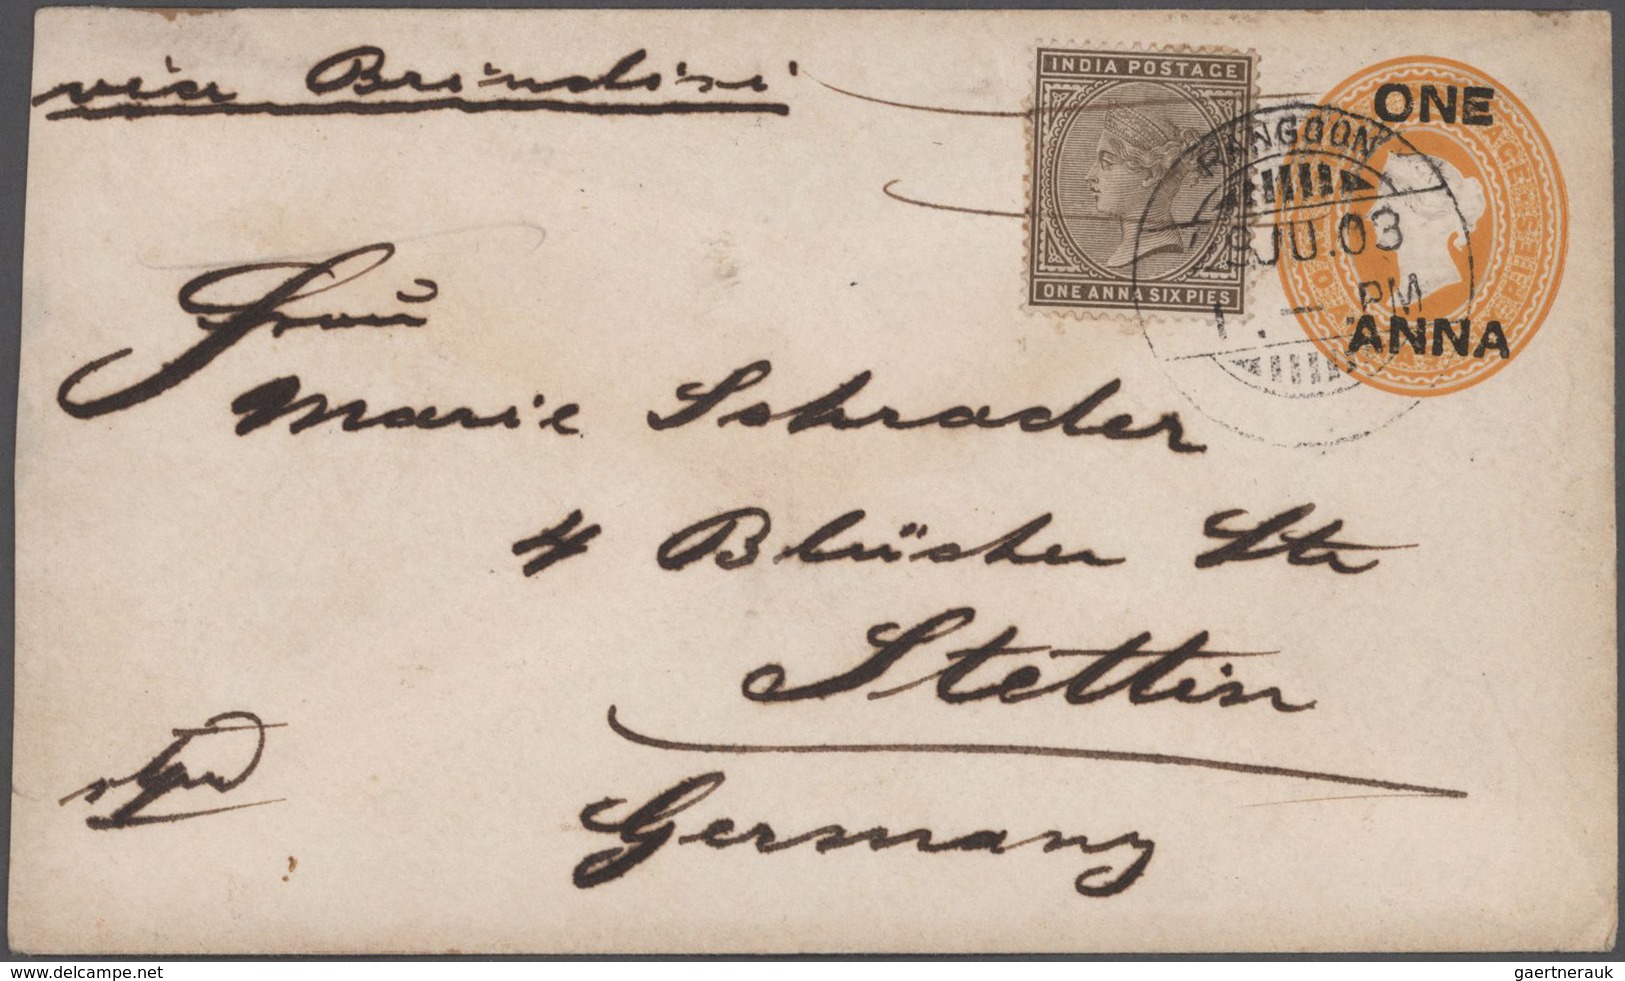 via Brindisi
INDIA POSTAGE
ONE ANNA SIX PIES
ONE
ANNA
RANGOON
JU.03
1.— .PM
Frau
Marie Schrader
4 Blücher Str
Stettin
Germany
www.delcampe.net
gaertnerauk